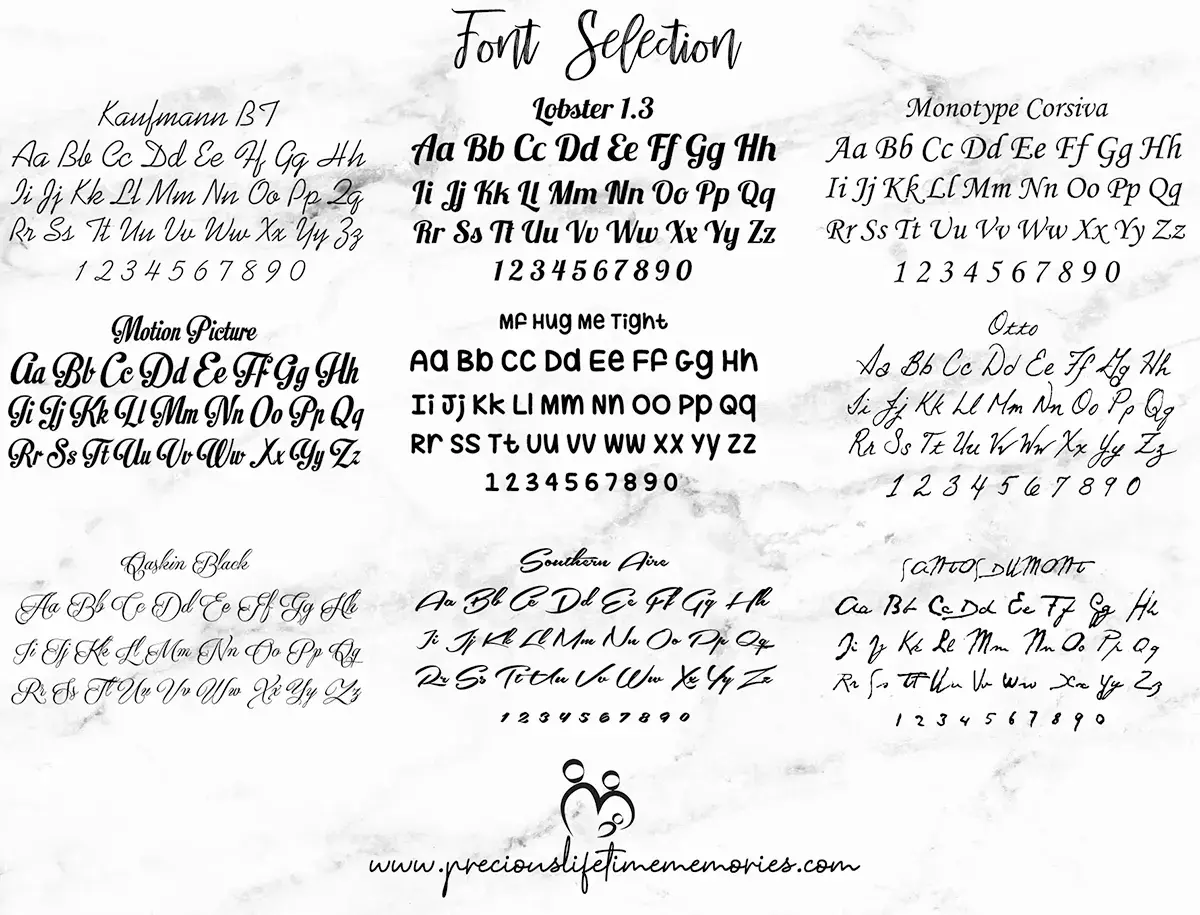 Font Selection
Kaufmann BT
Aa Bb Cc Dd Ee Ff Gg Hh
Ii Jj Kk Ll Mm Nn Oo Pp Qq
Rr Ss Tt Uu Vv Ww Xx Yy Zz
1 2 3 4 5 6 7 8 9 0
Lobster 1.3
Aa Bb Cc Dd Ee Ff Gg Hh
Ii Jj Kk Ll Mm Nn Oo Pp Qq
Rr Ss Tt Uu Vv Ww Xx Yy Zz
1 2 3 4 5 6 7 8 9 0
Monotype Corsiva
Aa Bb Cc Dd Ee Ff Gg Hh
Ii Jj Kk Ll Mm Nn Oo Pp Qq
Rr Ss Tt Uu Vv Ww Xx Yy Zz
1 2 3 4 5 6 7 8 9 0
Motion Picture
Aa Bb Cc Dd Ee Ff Gg Hh
Ii Jj Kk Ll Mm Nn Oo Pp Qq
Rr Ss Tt Uu Vv Ww Xx Yy Zz
Mf Hug Me Tight
Aa Bb Cc Dd Ee Ff Gg Hh
Ii Jj Kk Ll Mm Nn Oo Pp Qq
Rr Ss Tt Uu Vv Ww Xx Yy Zz
1 2 3 4 5 6 7 8 9 0
Otto
Aa Bb Cc Dd Ee Ff Gg Hh
Ii Jj Kk Ll Mm Nn Oo Pp Qq
Rr Ss Tt Uu Vv Ww Xx Yy Zz
1 2 3 4 5 6 7 8 9 0
Qaskin Black
Aa Bb Cc Dd Ee Ff Gg Hh
Ii Jj Kk Ll Mm Nn Oo Pp Qq
Rr Ss Tt Uu Vv Ww Xx Yy Zz
Southern Aire
Aa Bb Cc Dd Ee Ff Gg Hh
Ii Jj Kk Ll Mm Nn Oo Pp Qq
Rr Ss Tt Uu Vv Ww Xx Yy Zz
1 2 3 4 5 6 7 8 9 0
SANTOS DUMONT
Aa Bb Cc Dd Ee Ff Gg Hh
Ii Jj Kk Ll Mm Nn Oo Pp Qq
Rr Ss Tt Uu Vv Ww Xx Yy Zz
1 2 3 4 5 6 7 8 9 0
www.preciouslifetimememories.com